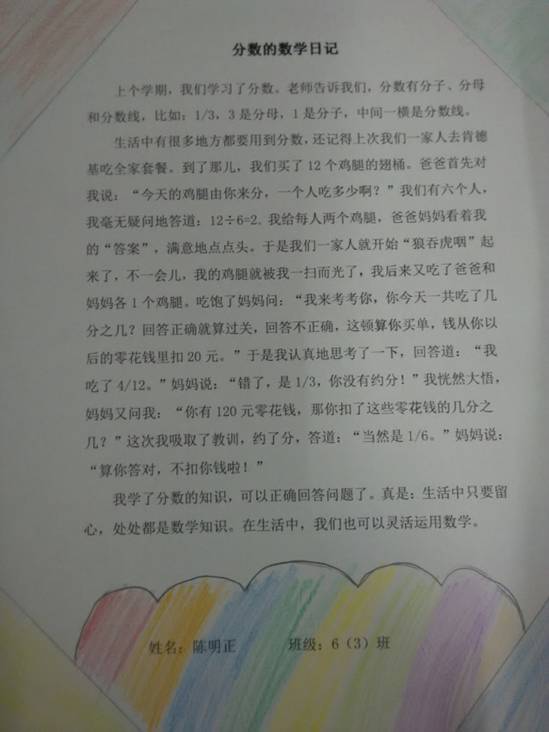 分数的数学日记
上个学期，我们学习了分数。老师告诉我们，分数有分子、分母
和分数线，比如：1/3，3 是分母，1 是分子，中间一横是分数线。
生活中有很多地方都要用到分数，还记得上次我们一家人去肯德
基吃全家套餐。到了那儿，我们买了 12 个鸡腿的翅桶。爸爸首先对
我说：“今天的鸡腿由你来分，一个人吃多少啊？”我们有六个人，
我毫无疑问地答道：12÷6=2。我给每人两个鸡腿，爸爸妈妈看着我
的“答案”，满意地点点头。于是我们一家人就开始“狼吞虎咽”起
来了，不一会儿，我的鸡腿就被我一扫而光了，我后来又吃了爸爸和
妈妈各 1 个鸡腿。吃饱了妈妈问：“我来考考你，你今天一共吃了几
分之几？回答正确就算过关，回答不正确，这顿算你买单，钱从你以
后的零花钱里扣 20 元。”于是我认真地思考了一下，回答道：“我
吃了 4/12。”妈妈说：“错了，是 1/3，你没有约分！”我恍然大悟，
妈妈又问我：“你有 120 元零花钱，那你扣了这些零花钱的几分之
几？”这次我吸取了教训，约了分，答道：“当然是 1/6。”妈妈说：
“算你答对，不扣你钱啦！”
我学了分数的知识，可以正确回答问题了。真是：生活中只要留
心，处处都是数学知识。在生活中，我们也可以灵活运用数学。
姓名：陈明正 班级：6（3）班